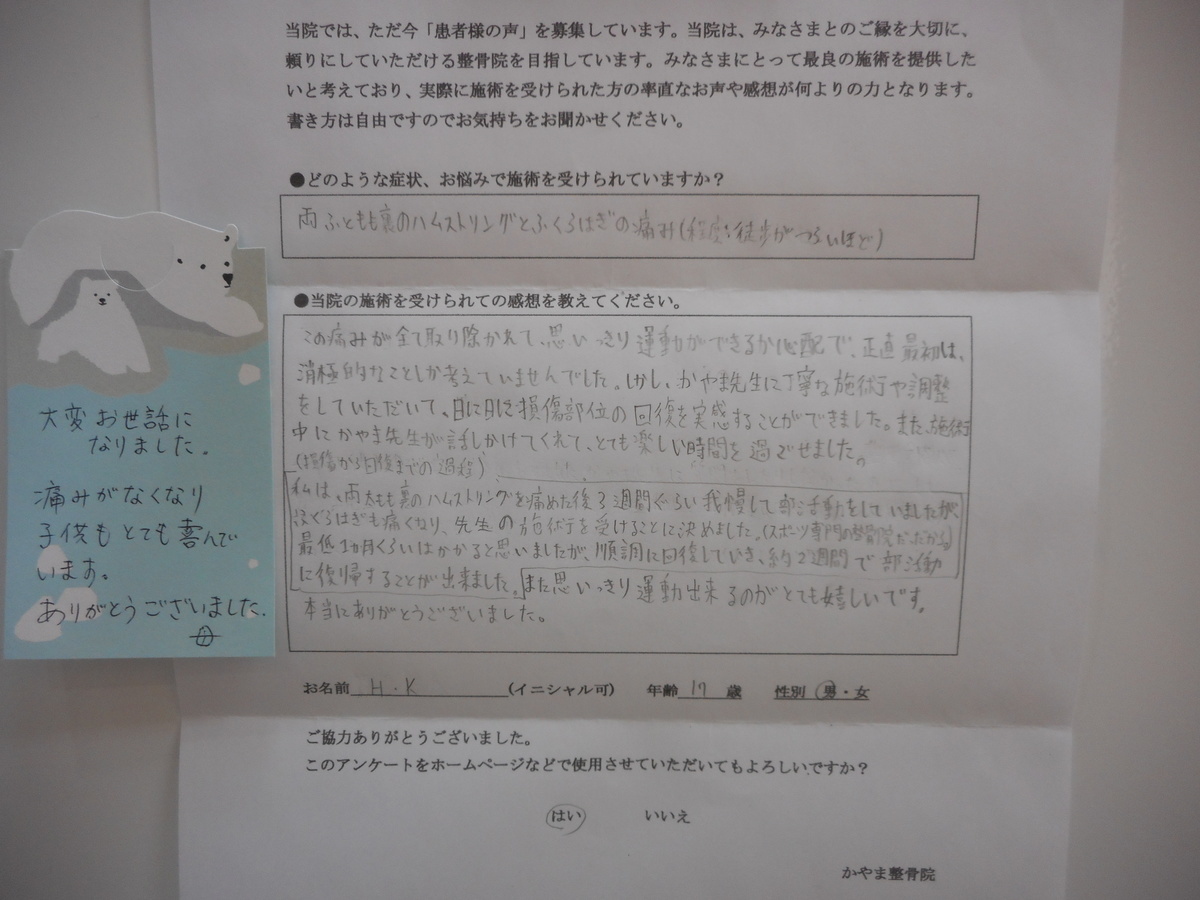 当院では、ただ今「患者様の声」を募集しています。当院は、みなさまとのご縁を大切に、
頼りにしていただける整骨院を目指しています。みなさまにとって最良の施術を提供した
いと考えており、実際に施術を受けられた方の率直なお声や感想が何よりの力となります。
書き方は自由ですのでお気持ちをお聞かせください。
●どのような症状、お悩みで施術を受けられていますか？
両ふともも裏のハムストリングとふくらはぎの痛み(程度:徒歩がつらいほど)
●当院の施術を受けられての感想を教えてください。
この痛みが全て取り除かれて、思いっきり運動ができるか心配で、正直最初は、
消極的なことしか考えていませんでした。しかし、かやま先生に丁寧な施術や調整
をしていただいて、日に日に損傷部位の回復を実感することができました。また、施術
中にかやま先生が話しかけてくれて、とても楽しい時間を過ごせました。
(損傷から回復までの過程)
私は、両太もも裏のハムストリングを痛めた後3週間ぐらい我慢して部活動をしていましたが、
ふくらはぎも痛くなり、先生の施術を受けることに決めました。(スポーツ専門の整骨院だったから。)
最低1カ月くらいはかかると思いましたが、順調に回復していき、約2週間で部活動
に復帰することが出来ました。また思いっきり運動出来るのがとても嬉しいです。
本当にありがとうございました。
お名前 H・K (イニシャル可) 年齢 17 歳 性別 男・女
ご協力ありがとうございました。
このアンケートをホームページなどで使用させていただいてもよろしいですか？
はい いいえ
かやま整骨院
大変お世話に
なりました。
痛みがなくなり
子供もとても喜んで
います。
ありがとうございました。
母